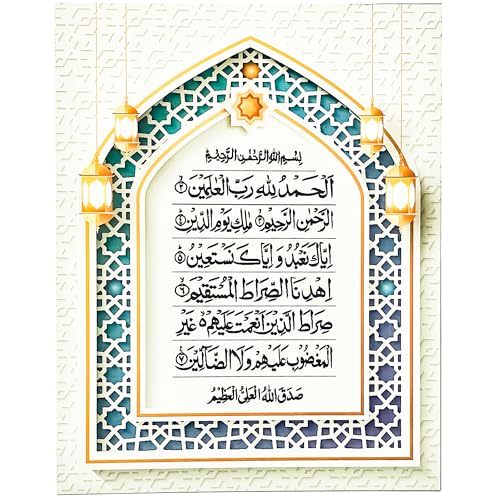 بِسْمِ اللهِ الرَّحْمٰنِ الرَّحِيْمِ
اَلْحَمْدُ لِلّٰهِ رَبِّ الْعٰلَمِيْنَ ٢
الرَّحْمٰنِ الرَّحِيْمِ ٣ مٰلِكِ يَوْمِ الدِّيْنِ ٤
اِيَّاكَ نَعْبُدُ وَ اِيَّاكَ نَسْتَعِيْنُ ٥
اِهْدِنَا الصِّرَاطَ الْمُسْتَقِيْمَ ٦
صِرَاطَ الَّذِيْنَ اَنْعَمْتَ عَلَيْهِمْ ە غَيْرِ
الْمَغْضُوْبِ عَلَيْهِمْ وَلَا الضَّالِّيْنَ ٧
صَدَقَ اللهُ الْعَلِيُّ الْعَظِيْمُ